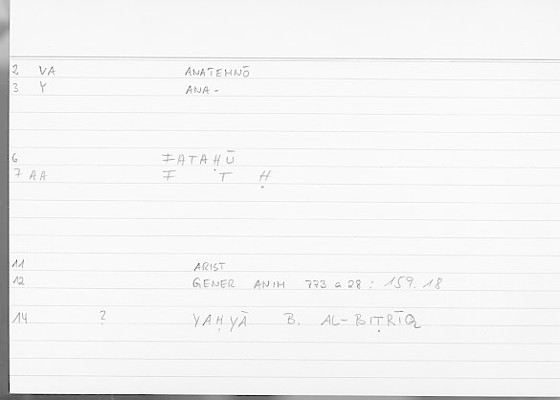 2 VA ANATEMNŌ
3 Y ANA-
6 FATAḤŪ
7 AA F T Ḥ
11 ARIST
12 GENER ANIM 773 a 28 : 159.18
14 ? YAḤYĀ B. AL-BIṬRĪQ